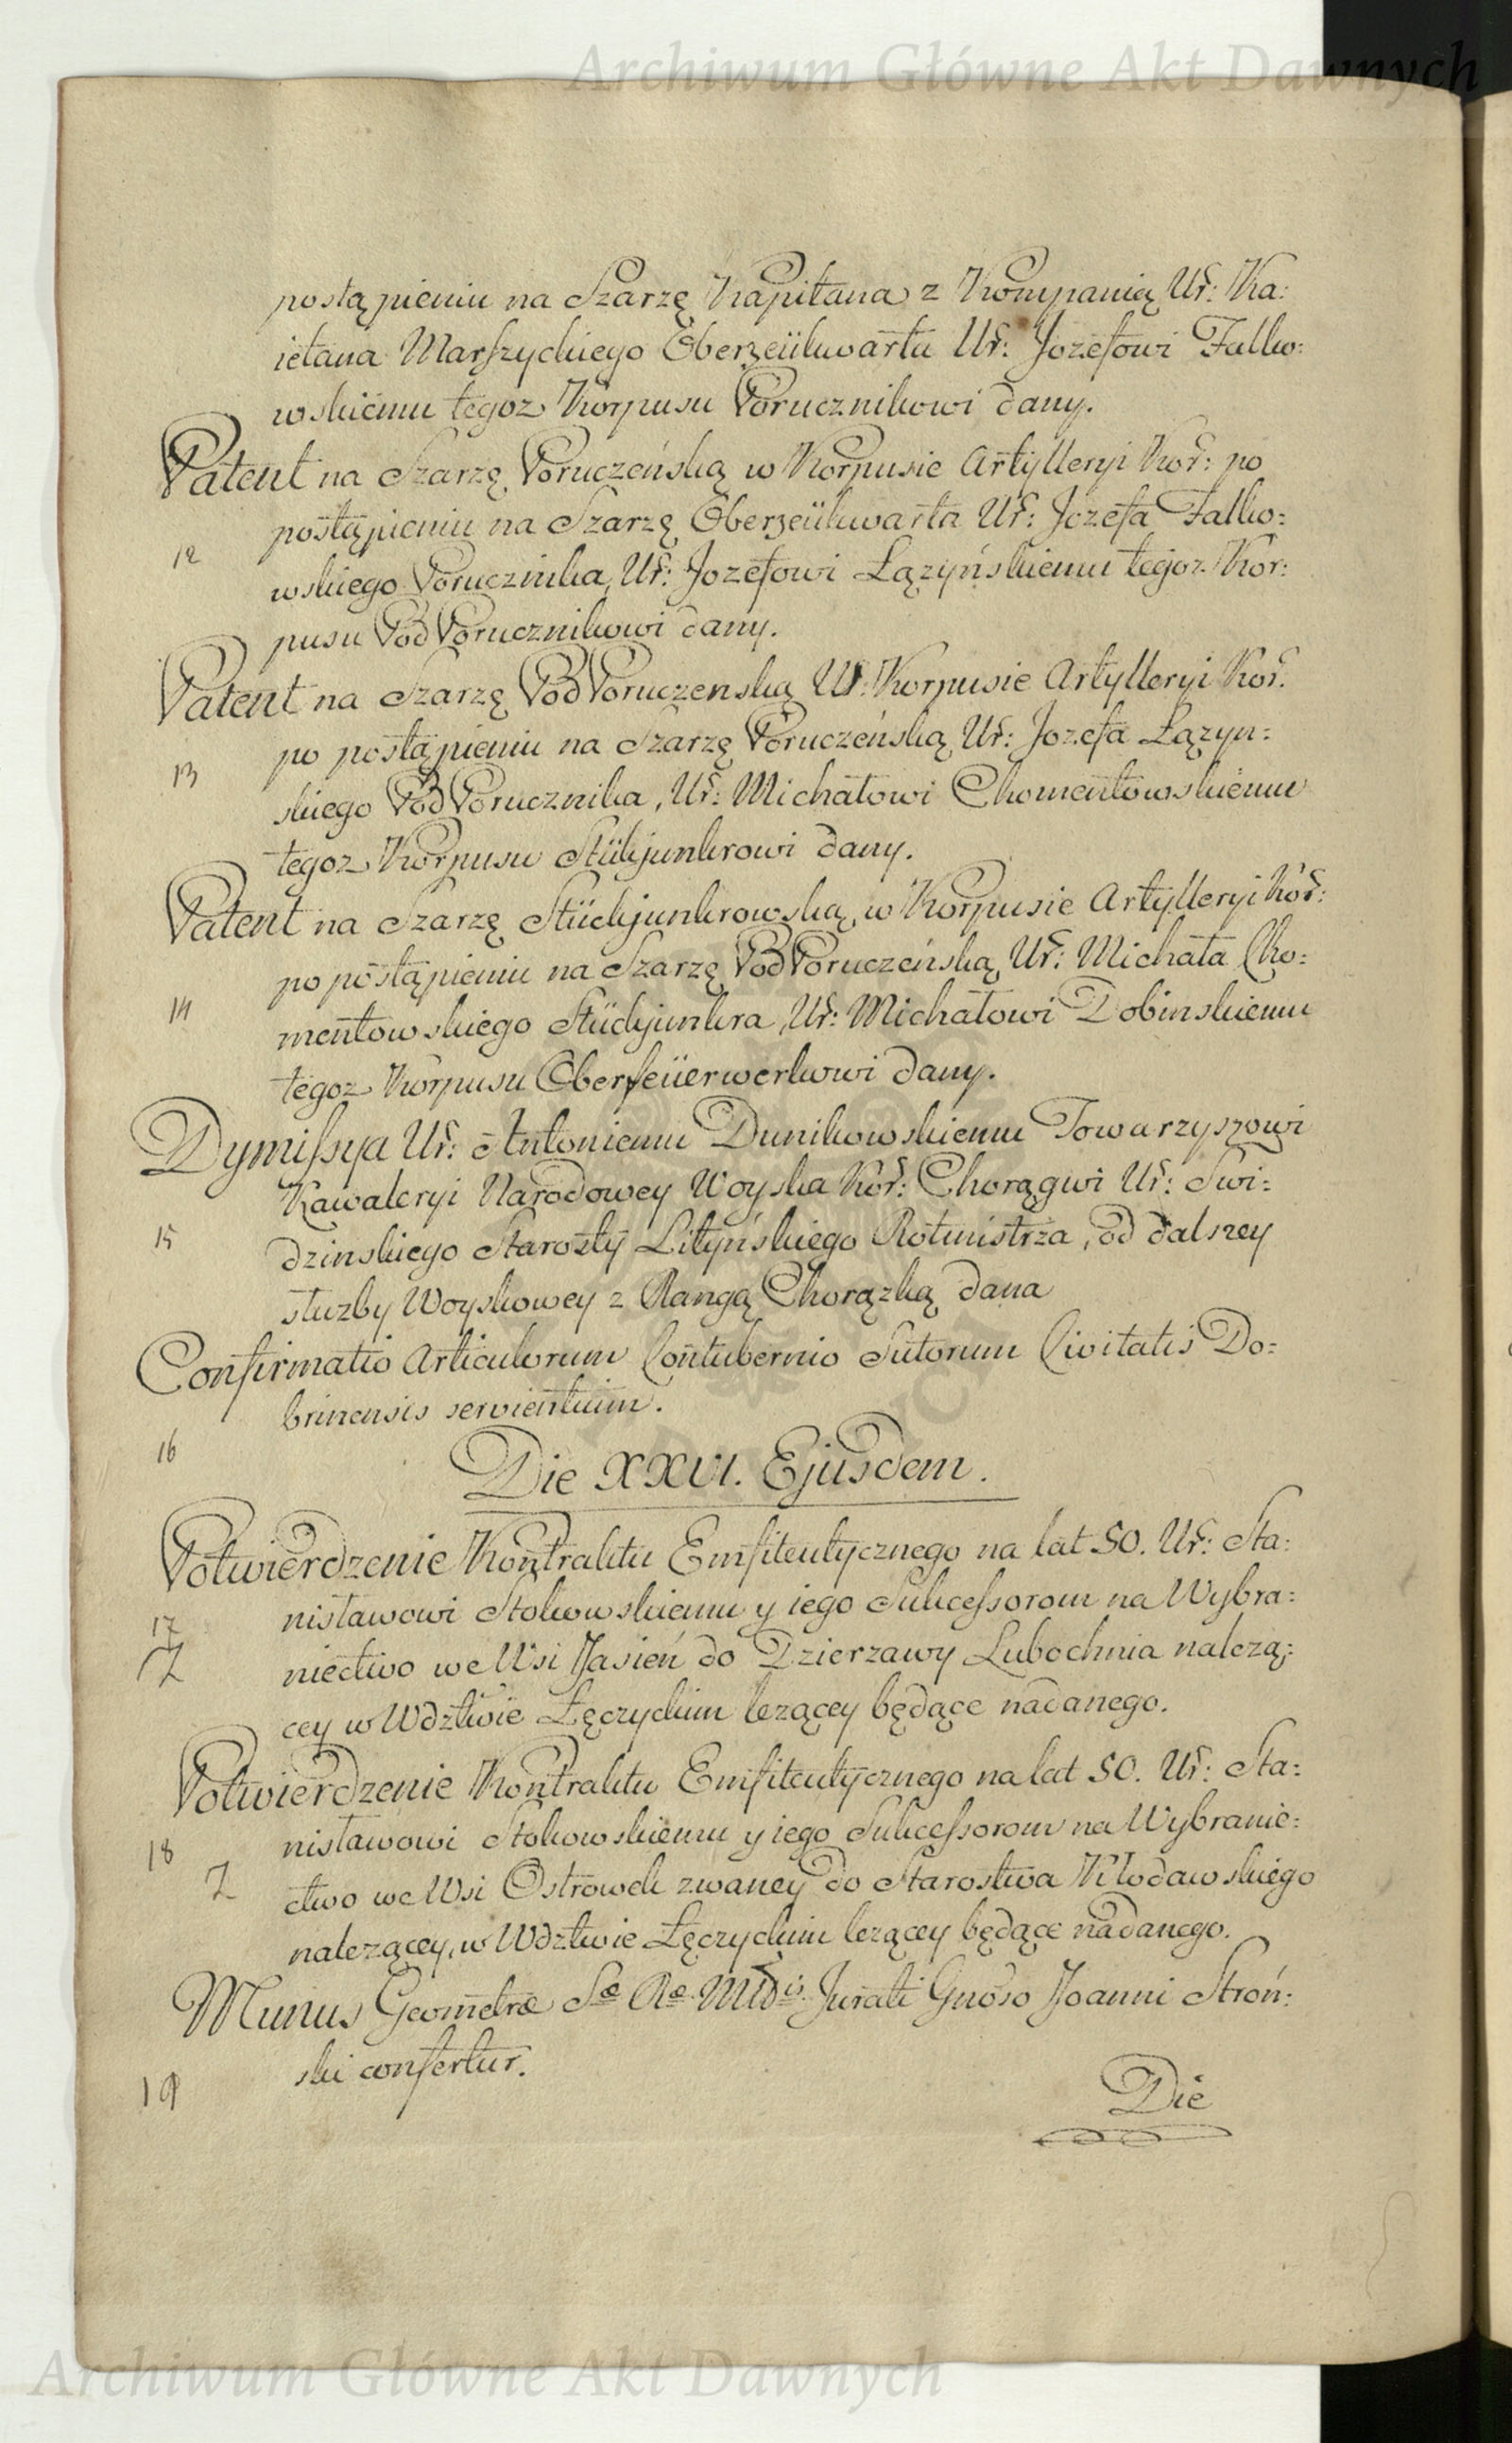 Archiwum Główne Akt Dawnych
postąpieniu na Szarzę Kapitana z Kompanią Ur: Ka:
ietana Marszyckiego Oberzeükwarta Ur: Jozefowi Falko:
wskiemu tegoz Korpusu Porucznikowi dany.
Patent na Szarzę Poruczeńską w Korpusie Artylleryi Kor: po
postąpieniu na Szarzę Oberzeükwarta Ur: Jozefa Falko:
12
wskiego Porucznika, Ur: Jozefowi Łązyńskiemu tegoz Kor:
pusu PodPorucznikowi dany.
Patent na Szarzę PodPoruczenską W Korpusie Artylleryi Kor:
po postąpieniu na Szarzę Poruczeńską Ur: Jozefa Łązyn:
13
skiego PodPorucznika, Ur: Michałowi Chomentowskiemu
tegoz Korpusu Stükjunkrowi dany.
Patent na Szarzę Stückjunkrowską w Korpusie Artylleryi Kor:
po postąpieniu na Szarzę PodPoruczeńską Ur: Michała Cho:
14
mentowskiego Stückjunkra, Ur: Michałowi Dobinskiemu
tegoz Korpusu Oberfeüerwerkowi dany.
Dymissya Ur: Antoniemu Dunikowskiemu Towarzyszowi
Kawaleryi Narodowey Woyska Kor: Chorągwi Ur: Swi:
15
dzinskiego Starosty Lityńskiego Rotmistrza, od dalszey
słuzby Woyskowey z Rangą Chorązką dana
Confirmatio Articulorum Contubernio Sutorum Civitatis Do:
brinensis servientium.
16
Die XXVI. Ejusdem.
Potwierdzenie Kontraktu Emfiteutycznego na lat 50. Ur: Sta:
nisławowi Stokowskiemu y iego Sukcessorom na Wybra:
17
niectwo we Wsi Jasień do Dzierzawy Lubochnia nalezą:
Z
cey w Wdztwie Łęczyckim lezącey będące nadanego.
Potwierdzenie Kontraktu Emfiteutycznego na lat 50. Ur: Sta:
nisławowi Stokowskiemu y iego Sukcessorom na Wybranie:
18
Z
ctwo we Wsi Ostrowek zwaney do Starostwa Kłodawskiego
nalezącey, w Wdztwie Łęczyckim lezącey będące nadanego.
Munus Geometræ Sæ Ræ Mtis Jurati Gnoso Joanni Stroń:
ski confertur.
19
Die
Archiwum Główne Akt Dawnych